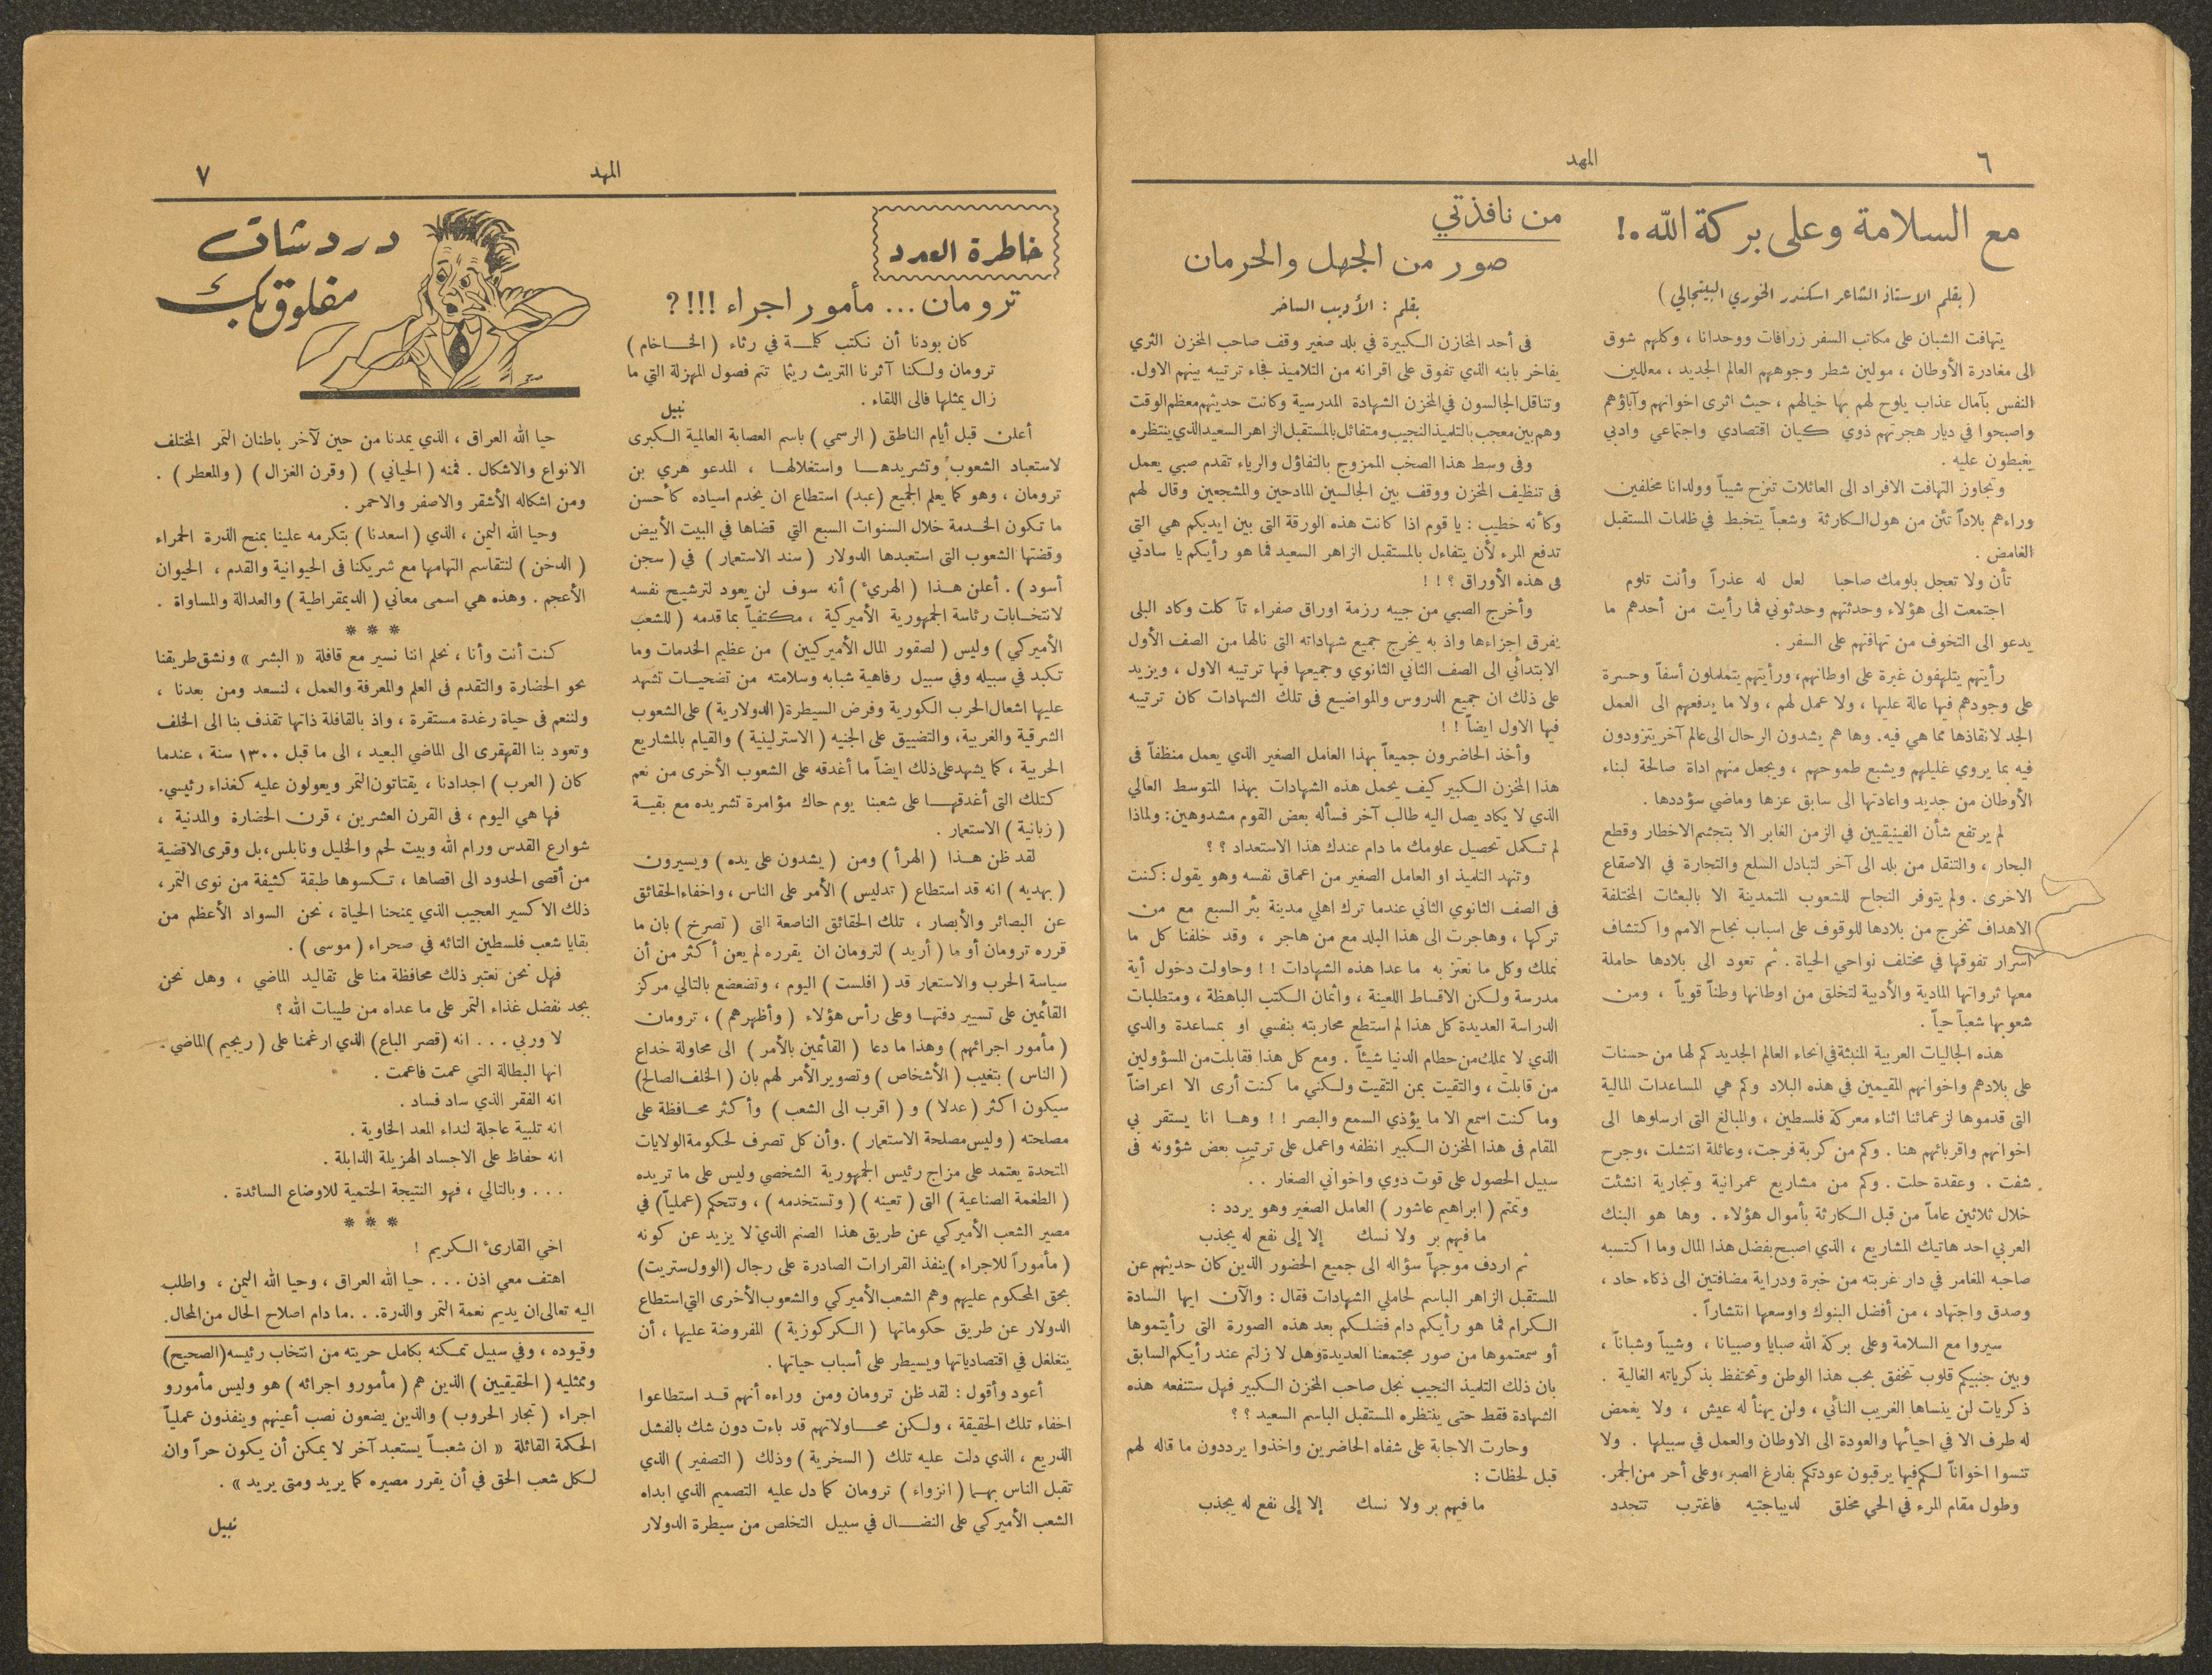 ٦
المهد
مع السلامة وعلى بركة الله.!
( بقلم الاستاذ الشاعر اسكندر الخوري البيتجالي )
يتهافت الشبان على مكاتب السفر زرافات ووحدانا ، وكلهم شوق
الى مغادرة الأوطان ، مولين شطر وجوههم العالم الجديد ، معللين
النفس بآمال عذاب يلوح لهم بها خيالهم ، حيث اثرى اخوانهم وآباؤهم
واصبحوا في ديار هجرتهم ذوي كيان اقتصادي واجتماعي وادبي
يغبطون عليه .
وتجاوز التهافت الافراد الى العائلات تنزح شيباً وولدانا مخلفين
وراءهم بلاداً تئن من هول الكارثة وشعباً يتخبط في ظلمات المستقبل
الغامض .
تأن ولا تعجل بلومك صاحبا لعل له عذراً وأنت تلوم
اجتمعت الى هؤلاء وحدثتهم وحدثوني فما رأيت من أحدهم ما
يدعو الى التخوف من تهافتهم على السفر .
رأيتهم يتلهفون غيرة على اوطانهم، ورأيتهم يتململون أسفاً وحسرة
على وجودهم فيها عالة عليها ، ولا عمل لهم ، ولا ما يدفعهم الى العمل
الجد لانقاذها مما هي فيه. وها هم يشدون الرحال الى عالم آخر يتزودون
فيه بما يروي غليلهم ويشبع طموحهم ، ويجعل منهم اداة صالحة لبناء
الأوطان من جديد واعادتها الى سابق عزها وماضي سؤددها .
لم يرتفع شأن الفينيقيين في الزمن الغابر الا بتجشم الاخطار وقطع
البحار ، والتنقل من بلد الى آخر لتبادل السلع والتجارة في الاصقاع
الاخرى . ولم يتوفر النجاح للشعوب المتمدينة الا بالبعثات المختلفة
الاهداف تخرج من بلادها للوقوف على اسباب نجاح الامم واكتشاف
اسرار تفوقها في مختلف نواحي الحياة . ثم تعود الى بلادها حاملة
معها ثرواتها المادية والأدبية لتخلق من اوطانها وطناً قوياً ، ومن
شعوبها شعباً حياً .
هذه الجاليات العربية المنبثة في انحاء العالم الجديد كم لها من حسنات
على بلادهم واخوانهم المقيمين في هذه البلاد وكم هي المساعدات المالية
التى قدموها لزعمائنا اثناء معركة فلسطين ، والمبالغ التى ارسلوها الى
اخوانهم واقربائهم هنا . وكم من كربة فرجت، وعائلة انتشلت ،وجرح
شفت . وعقدة حلت . وكم من مشاريع عمرانية وتجارية انشئت
خلال ثلاثين عاماً من قبل الكارثة بأموال هؤلاء . وها هو البنك
العربي احد هاتيك المشاريع ، الذي اصبح بفضل هذا المال وما اكتسبه
صاحبه المغامر في دار غربته من خبرة ودراية مضافتين الى ذكاء حاد ،
وصدق واجتهاد ، من أفضل البنوك واوسعها انتشاراً .
سيروا مع السلامة وعلى بركة الله صبايا وصبيانا ، وشيباً وشباناً ،
وبين جنبيكم قلوب تخفق بحب هذا الوطن وتحتفظ بذكرياته الغالية .
ذكريات لن ينساها الغريب النائي ، ولن يهنأ له عيش ، ولا يغمض
له طرف الا في احيائها والعودة الى الاوطان والعمل في سبيلها . ولا
تنسوا اخواناً لكم فيها يرقبون عودتكم بفارغ الصبر ،وعلى أحر من الجمر.
وطول مقام المرء في الحي مخلق لديباجتيه فاغترب تتجدد
من نافذتي
صور من الجهل والحرمان
بقلم : الأديب الساخر
فى أحد المخازن الكبيرة في بلد صغير وقف صاحب المخزن الثري
يفاخر بابنه الذي تفوق على اقرانه من التلاميذ فجاء ترتيبه بينهم الاول.
وتناقل الجالسون في المخزن الشهادة المدرسية وكانت حديثهم معظم الوقت
وهم بين معجب بالتلميذ النجيب ومتفائل بالمستقبل الزاهر السعيد الذي ينتظره
وفى وسط هذا الصخب الممزوج بالتفاؤل والرياء تقدم صبي يعمل
فى تنظيف المخزن ووقف بين الجالسين المادحين والمشجعين وقال لهم
وكأنه خطيب : يا قوم اذا كانت هذه الورقة التى بين ايديكم هي التى
تدفع المرء لأن يتفاءل بالمستقبل الزاهر السعيد فما هو رأيكم يا سادتي
فى هذه الأوراق ؟ ! !
وأخرج الصبي من جيبه رزمة اوراق صفراء تآكلت وكاد البلى
يفرق اجزاءها واذ به يخرج جميع شهاداته التى نالها من الصف الأول
الابتدائي الى الصف الثاني الثانوي وجميعها فيها ترتيبه الاول ، ويزيد
على ذلك ان جميع الدروس والمواضيع فى تلك الشهادات كان ترتيبه
فيها الاول ايضاً ! !
وأخذ الحاضرون جميعاً بهذا العامل الصغير الذي يعمل منظفاً فى
هذا المخزن الكبير كيف يحمل هذه الشهادات بهذا المتوسط العالي
الذي لا يكاد يصل اليه طالب آخر فسأله بعض القوم مشدوهين: ولماذا
لم تكمل تحصيل علومك ما دام عندك هذا الاستعداد ؟ ؟
وتنهد التلميذ او العامل الصغير من اعماق نفسه وهو يقول :كنت
فى الصف الثانوي الثاني عندما ترك اهلي مدينة بئر السبع مع من
تركها ، وهاجرت الى هذا البلد مع من هاجر ، وقد خلفنا كل ما
نملك وكل ما نعتز به ما عدا هذه الشهادات ! ! وحاولت دخول أية
مدرسة ولكن الاقساط اللعينة ، واثمان الكتب الباهظة ، ومتطلبات
الدراسة العديدة كل هذا لم استطع محاربته بنفسي او بمساعدة والدي
الذي لا يملك من حطام الدنيا شيئاً . ومع كل هذا فقابلت من المسؤولين
من قابلت ، والتقيت بمن التقيت ولكني ما كنت أرى الا اعراضاً
وما كنت اسمع الا ما يؤذي السمع والبصر ! ! وها انا يستقر بي
المقام فى هذا المخزن الكبير انظفه واعمل على ترتيب بعض شؤونه فى
سبيل الحصول على قوت ذوي واخواني الصغار . .
وتمتم ( ابراهيم عاشور ) العامل الصغير وهو يردد :
ما فيهم بر ولا نسك إلا إلى نفع له يجذب
ثم اردف موجهاً سؤاله الى جميع الحضور الذين كان حديثهم عن
المستقبل الزاهر الباسم لحاملي الشهادات فقال : والآن ايها السادة
الكرام فما هو رأيكم دام فضلكم بعد هذه الصورة التى رأيتموها
أو سمعتموها من صور مجتمعنا العديدة وهل لا زلتم عند رأيكم السابق
بان ذلك التلميذ النجيب نجل صاحب المخزن الكبير فهل ستنفعه هذه
الشهادة فقط حتى ينتظره المستقبل الباسم السعيد ؟ ؟
وحارت الاجابة على شفاه الحاضرين واخذوا يرددون ما قاله لهم
قبل لحظات :
ما فيهم بر ولا نسك إلا إلى نفع له يجذب
المهد
٧
خاطرة العدد
ترومان... مأمور اجراء !!!؟
كان بودنا أن نكتب كلمة في رثاء ( الحاخام )
ترومان ولكنا آثرنا التريث ريثما تتم فصول المهزلة التي ما
زال يمثلها فالى اللقاء .
نبيل
أعلن قبل أيام الناطق ( الرسمي ) باسم العصابة العالمية الكبرى
لاستعباد الشعوب وتشريدها واستغلالها ، المدعو هري بن
ترومان ، وهو كما يعلم الجميع (عبد) استطاع ان يخدم اسياده كأحسن
ما تكون الخدمة خلال السنوات السبع التي قضاها في البيت الأبيض
وقضتها الشعوب التى استعبدها الدولار ( سند الاستعمار ) في ( سجن
أسود ) . أعلن هذا ( الهريء ) أنه سوف لن يعود لترشيح نفسه
لانتخابات رئاسة الجمهورية الأميركية ، مكتفياً بما قدمه ( للشعب
الأميركي ) وليس ( لصقور المال الأميركيين ) من عظيم الخدمات وما
تكبد في سبيله وفي سبيل رفاهية شبابه وسلامته من تضحيات تشهد
عليها اشعال الحرب الكورية وفرض السيطرة ( الدولارية ) على الشعوب
الشرقية والغربية ، والتضييق على الجنيه ( الاسترلينية ) والقيام بالمشاريع
الحربية ، كما يشهد على ذلك ايضاً ما أغدقه على الشعوب الأخرى من نعم
كتلك التى أغدقها على شعبنا يوم حاك مؤامرة تشريده مع بقية
( زبانية ) الاستعمار .
لقد ظن هذا ( الهرأ ) ومن ( يشدون على يده ) ويسيرون
( بهديه ) انه قد استطاع ( تدليس ) الأمر على الناس ، واخفاء الحقائق
عن البصائر والأبصار ، تلك الحقائق الناصعة التى ( تصرخ ) بان ما
قرره ترومان أو ما ( أريد ) لترومان ان يقرره لم يعن أكثر من أن
سياسة الحرب والاستعمار قد ( افلست ) اليوم ، وتضعضع بالتالي مركز
القائمين على تسيير دفتها وعلى رأس هؤلاء ( وأظهرهم ) ، ترومان
( مأمور اجرائهم ) وهذا ما دعا ( القائمين بالأمر ) الى محاولة خداع
( الناس ) بتغيب ( الأشخاص ) وتصوير الأمر لهم بان ( الخلف الصالح )
سيكون اكثر ( عدلا ) و ( اقرب الى الشعب ) وأكثر محافظة على
مصلحته ( وليس مصلحة الاستعمار ) .وأن كل تصرف لحكومة الولايات
المتحدة يعتمد على مزاج رئيس الجمهورية الشخصي وليس على ما تريده
( الطغمة الصناعية ) التى ( تعينه ) ( وتستخدمه ) ، وتتحكم (عملياً) في
مصير الشعب الأميركي عن طريق هذا الصنم الذي لا يزيد عن كونه
( مأموراً للاجراء ) ينفذ القرارات الصادرة على رجال (الوول ستريت)
بحق المحكوم عليهم وهم الشعب الأميركي والشعوب الأخرى التي استطاع
الدولار عن طريق حكوماتها ( الكركوزية ) المفروضة عليها ، أن
يتغلغل في اقتصادياتها ويسيطر على أسباب حياتها .
أعود وأقول : لقد ظن ترومان ومن وراءه أنهم قد استطاعوا
اخفاء تلك الحقيقة ، ولكن محاولاتهم قد باءت دون شك بالفشل
الذريع ، الذي دلت عليه تلك ( السخرية ) وذلك ( التصفير ) الذي
تقبل الناس بهما ( انزواء ) ترومان كما دل عليه التصميم الذي ابداه
الشعب الأميركي على النضال في سبيل التخلص من سيطرة الدولار
وقيوده ، وفي سبيل تمكنه بكامل حريته من انتخاب رئيسه (الصحيح)
وممثليه ( الحقيقيين ) الذين هم ( مأمورو اجرائه ) هو وليس مأمورو
اجراء ( تجار الحروب ) والذين يضعون نصب أعينهم وينفذون عملياً
الحكمة القائلة « ان شعباً يستعبد آخر لا يمكن أن يكون حراً وان
لكل شعب الحق في أن يقرر مصيره كما يريد ومتى يريد » .
نبيل
دردشات
مفلوق بك
حيا الله العراق ، الذي يمدنا من حين لآخر باطنان التمر المختلف
الانواع والاشكال . فمنه ( الحياني ) ( وقرن الغزال ) ( والمعطر ) .
ومن اشكاله الأشقر والاصفر والاحمر .
وحيا الله اليمن ، الذي ( اسعدنا ) بتكرمه علينا بمنح الذرة الحمراء
( الدخن ) لنتقاسم التهامها مع شريكنا فى الحيوانية والقدم ، الحيوان
الأعجم . وهذه هي اسمى معاني ( الديمقراطية ) والعدالة والمساواة .
* * *
كنت أنت وأنا ، نحلم اننا نسير مع قافلة « البشر » ونشق طريقنا
نحو الحضارة والتقدم فى العلم والمعرفة والعمل ، لنسعد ومن بعدنا ،
ولننعم فى حياة رغدة مستقرة ، واذ بالقافلة ذاتها تقذف بنا الى الخلف
وتعود بنا القهقرى الى الماضي البعيد ، الى ما قبل ١٣٠٠ سنة ، عندما
كان ( العرب ) اجدادنا ، يقتاتون التمر ويعولون عليه كغذاء رئيسي.
فها هي اليوم ، فى القرن العشرين ، قرن الحضارة والمدنية ،
شوارع القدس ورام الله وبيت لحم والخليل ونابلس، بل وقرى الاقضية
من أقصى الحدود الى اقصاها ، تكسوها طبقة كثيفة من نوى التمر ،
ذلك الاكسير العجيب الذي يمنحنا الحياة ، نحن السواد الأعظم من
بقايا شعب فلسطين التائه في صحراء ( موسى ) .
فهل نحن نعتبر ذلك محافظة منا على تقاليد الماضي ، وهل نحن
بجد نفضل غذاء التمر على ما عداه من طيبات الله ؟
لا وربي . . . انه (قصر الباع) الذي ارغمنا على ( ريجيم ) الماضي .
انها البطالة التي عمت فاعمت .
انه الفقر الذي ساد فساد .
انه تلبية عاجلة لنداء المعد الخاوية .
انه حفاظ على الاجساد الهزيلة الذابلة .
. . . وبالتالي ، فهو النتيجة الحتمية للاوضاع السائدة .
* * *
اخي القارىء الكريم !
اهتف معي اذن . . . حيا الله العراق ، وحيا الله اليمن ، واطلب
اليه تعالى ان يديم نعمة التمر والذرة. . .ما دام اصلاح الحال من المحال.